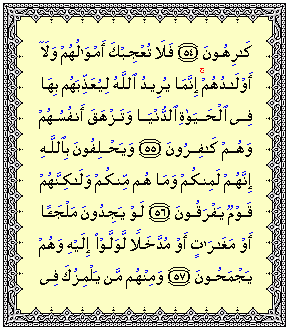 كَٰرِهُونَ ۝٥٤ فَلَا تُعْجِبْكَ أَمْوَٰلُهُمْ وَلَآ
أَوْلَٰدُهُمْ ۚ إِنَّمَا يُرِيدُ ٱللَّهُ لِيُعَذِّبَهُم بِهَا
فِى ٱلْحَيَوٰةِ ٱلدُّنْيَا وَتَزْهَقَ أَنفُسُهُمْ
وَهُمْ كَٰفِرُونَ ۝٥٥ وَيَحْلِفُونَ بِٱللَّهِ
إِنَّهُمْ لَمِنكُمْ وَمَا هُم مِّنكُمْ وَلَٰكِنَّهُمْ
قَوْمٌ يَفْرَقُونَ ۝٥٦ لَوْ يَجِدُونَ مَلْجَـًٔا
أَوْ مَغَٰرَٰتٍ أَوْ مُدَّخَلًا لَّوَلَّوْا۟ إِلَيْهِ وَهُمْ
يَجْمَحُونَ ۝٥٧ وَمِنْهُم مَّن يَلْمِزُكَ فِى